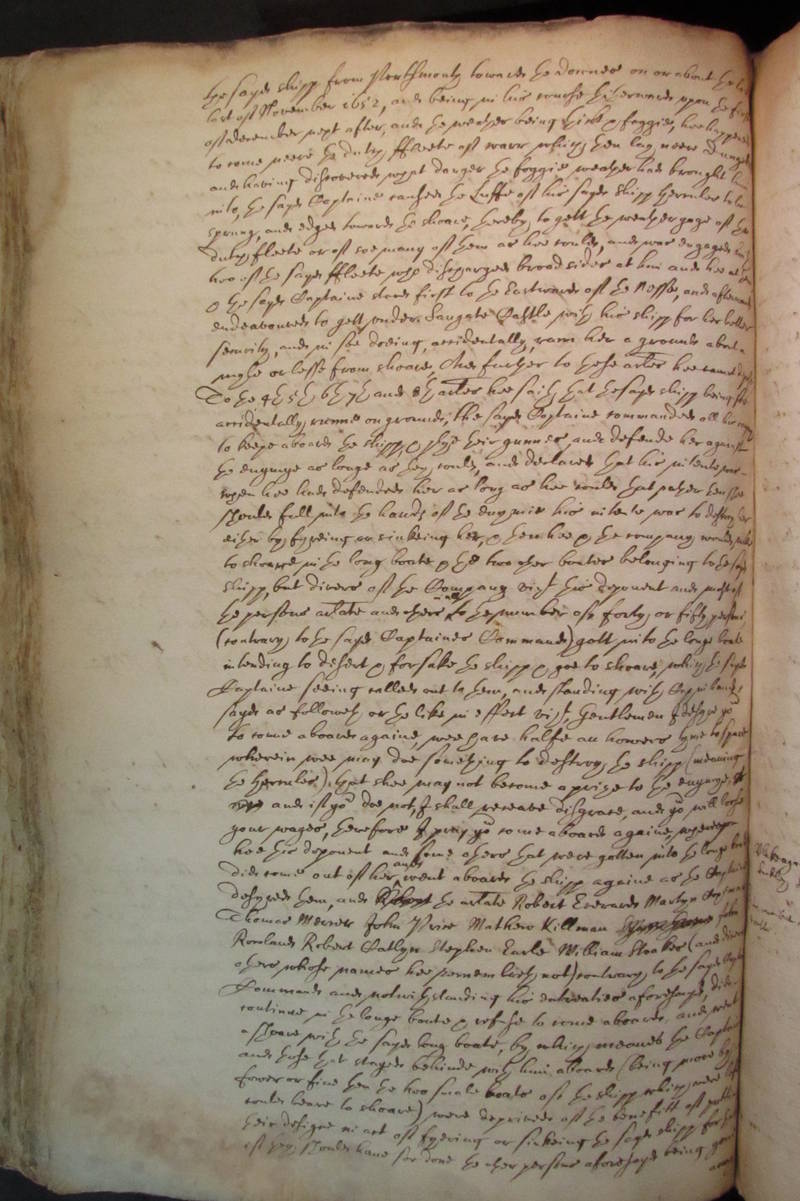 the sayd shipp from Porthmouth towards the downes on or about the
last of November 1652, and being in his course hitherwards upon the first
of december next after, and the weather being thick & foggie, hee happened
to come neere the dutch ffleete of warr which then lay neere Dungen
and having discovered what danger the foggie weather had brought him
into, the sayd Captaine caused the Luffe of his sayd shipp Hercules to be
sprung, and edged towards the shoare, thereby to gett the weather gage of the
dutch fleete or of soe many of them as hee could, and was engaged by
two of the sayd ffleete who discharged broad sides at him and hee at them
& the sayd Captaine stood first to the Eastward of the Nesse, and afterward
endeavoured to gett under Sangate Castle with his shipp for her better
security, and in soe doeing, accidentally rann her a ground about a
mile or lesse from shoare, And further to these arles hee cannot depose
To the 4th 5th 6th 7th and 8th arles hee saith that the sayd shipp being soe
accidentally runne on ground, the sayd Captaine commanded all his company
to keepe aboard the shipp, & plye their gunnes and defend her against
the enymye as longe as they could, and declared that his intente was
when hee had defended her as long as hee could that rather then she
should fall into the hands of the enymie his intente was to destroy her
either by fyreing or sinkeing her, & then hee & the company would make
to shoare in the long boate & the two other boates belonging to the sayd
shipp, but divers of the Company vizt this deponent and most of
the persons arlate and others to the number of forty or fifty persons
(contrary to the sayd Captaines Command) gott into the longe boate
intending to desert & forsake the shipp & goe to shoare, which the sayd
Captaine seeing called out to them, and standing with Capp in hand
sayd as followeth or the like in effect vizt, Gentlemen I desyre you
to come aboard againe, wee have halfe an howers tyme to spare
wherein wee may doe something to destroy the shipp (meaning
the Hercules) that shee may not become a prize to the enymye,
and if you doe not I shall receave disgrace, and you will loose
your wages, therefore I pray you come aboard againe, whereupon
hee this deponent and some others that were gotten into the longe boate
did come out of her and went aboard the shipp againe as the Captaine
desyred them, and the arlate Robert Edwards Martyn
Thomas Mercer John Price Mathew Killman John
Rowland Robert Catlyn Stephen Earle William Stoaker (and divers
others whose names hee remembreth not) contrary to the sayd Captaines
Command and notwithstanding his entreaties aforesayd, did
continue in the longe boate & refuse to come aboard, and went
a shoare with the sayd long boate, by which meanes the Captaine
and those that stayed behinde with him aboard (being more by
fower or five then the two smale boats of the shipp which were left
could beare to shoare) were deprived of the benefitt of putting
their designe in act of fyreing or sinkeing the sayd shipp for
if they should have soe done the other persons aforesayd being gone